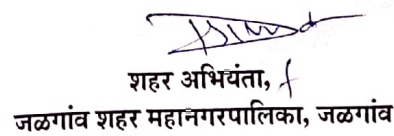 शहर अभियंता,
जळगांव शहर महानगरपालिका, जळगांव